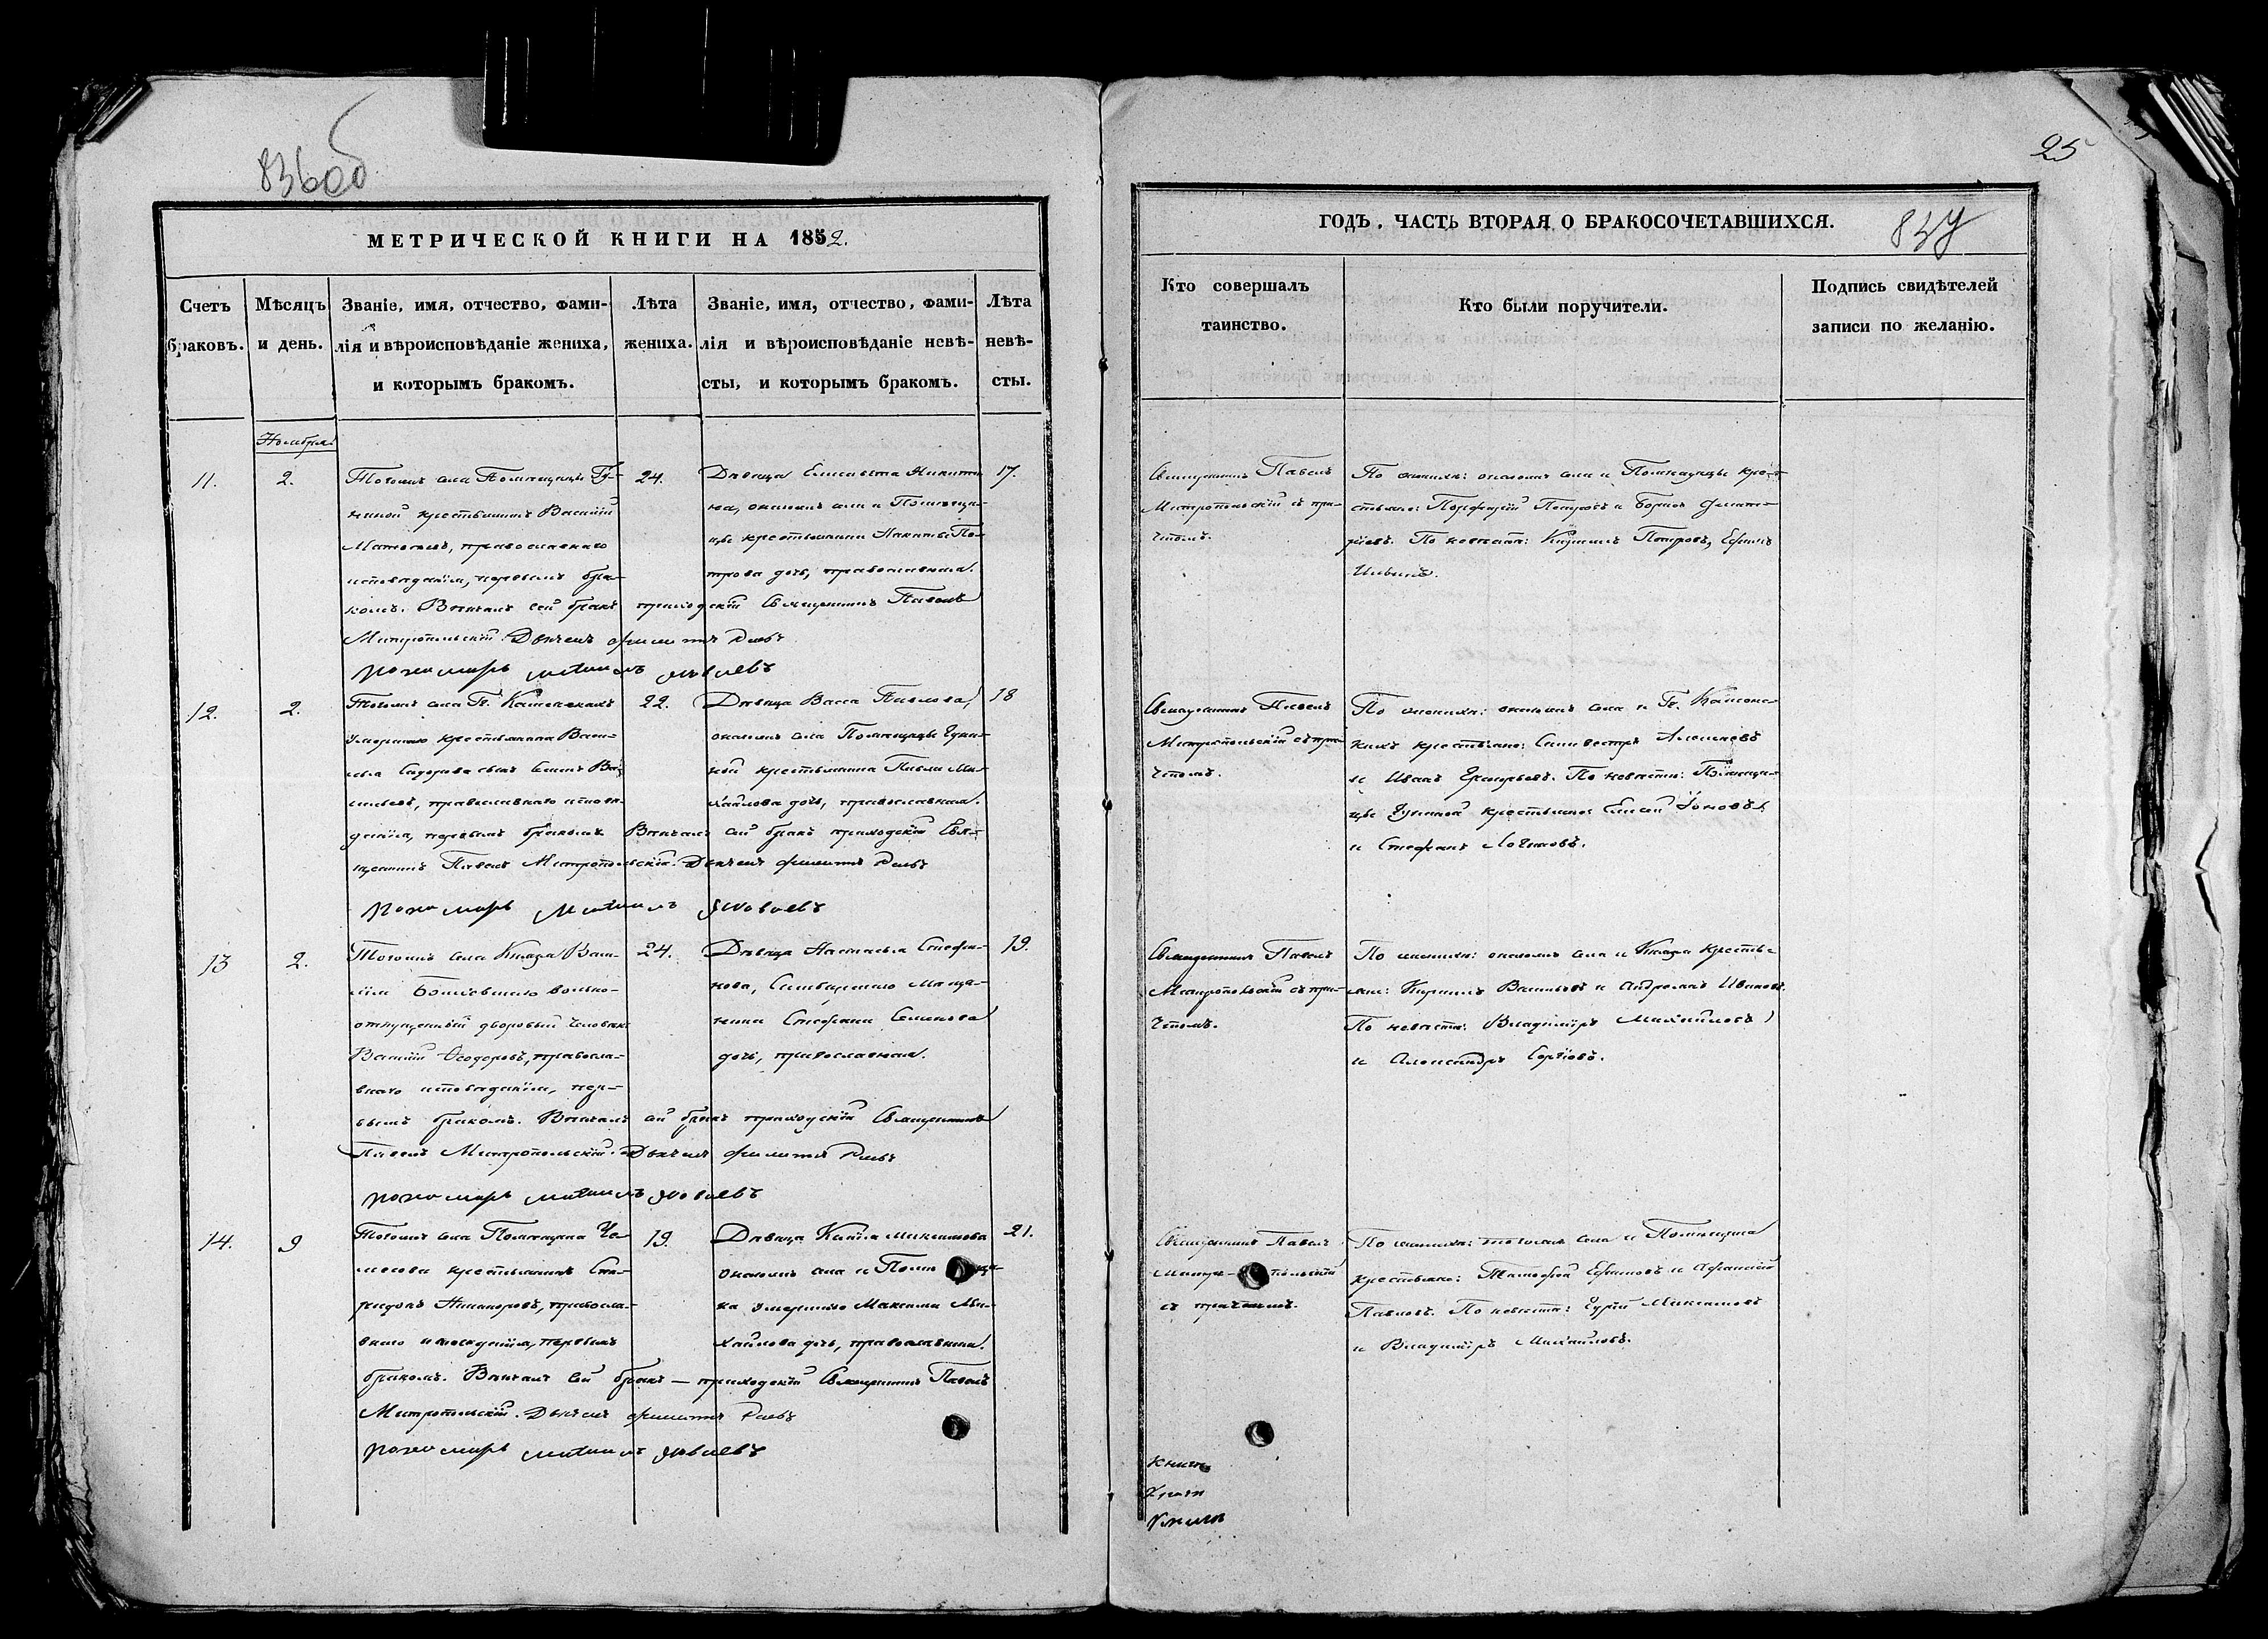 836об
МЕТРИЧЕСКОЙ КНИГИ НА 1852.
Счетъ браковъ.
Мѣсяцъ и день.
Званіе, имя, отчество, фами-
лія и вѣроисповѣданіе жениха,
и которымъ бракомъ.
Лѣта жениха.
Званіе, имя, отчество, фами-
лія и вѣроисповѣданіе невѣ-
сты, и которымъ бракомъ.
Лѣта невѣ-
сты.
Ноября
11.
2.
Тогожъ села Помѣщицы Гу-
ниной крестьянинъ Василій
Матвѣевъ, православнаго
исповѣданія, первымъ бра-
комъ. Вѣнчалъ сей бракъ приходскій Священникъ Павелъ
Митропольскій. Дьячекъ
24.
Дѣвица Елисавета Никити-
на, оного жъ села и Помѣщи-
цы крестьянина Никиты Пе-
трова дочь, православная.
17.
12.
2.
Тогожъ села Гг. Каменскихъ
умершаго крестьянина Васи-
лья Сидорова сынъ Ва-
сильевъ, православнаго исповѣ-
данія, первымъ бракомъ Вѣнчалъ сей бракъ приходскій Свя-
щенникъ Павелъ Митропольскій. Дьячекъ
22.
Дѣвица Васса Павлова,
оного жъ села Помѣщицы Гуни-
ной крестьянина Павла Ми-
хайлова дочь, православная.
18
13
2.
Тогожъ села Князя Васи-
лія вольно-
отпущенный дворовый человѣкъ
Василій Ѳеодоровъ, правосла-
внаго исповѣданія, пер-
вымъ бракомъ. Вѣнчалъ сей бракъ приходскій Священникъ
Павелъ Митропольскій. Дьячекъ
24.
Дѣвица Настасья Стефа-
нова, Симбирскаго мѣща-
нина Стефана Семенова
дочь, православная.
19.
14.
9
Тогожъ села Помѣщика Че-
крестьянинъ Спи-
ридонъ Никаноровъ, правосла-
внаго исповѣданія, первымъ
бракомъ. Вѣнчалъ сей бракъ — приходскій Священникъ Павелъ
Митропольскій. Дьячекъ
19.
Дѣвица Максимова
оного жъ села и Помѣщи-
ка умершаго Максима Ми-
хайлова дочь, православная.
21.
25
ГОДЪ. ЧАСТЬ ВТОРАЯ О БРАКОСОЧЕТАВШИХСЯ.
837
Кто совершалъ
таинство.
Кто были поручители.
Подпись свидѣтелей
записи по желанію.
Священникъ Павелъ
Митропольскій съ при-
чтомъ.
По женихѣ: оного жъ села и Помѣщицы кре-
стьяне: Порфирій Петровъ и Борисъ Дмитрі-
евъ. По невѣстѣ: Петровъ, Ефимъ
Ильинъ.
Священникъ Павелъ
Митропольскій съ при-
чтомъ.
По женихѣ: оного жъ села и Гг. Каменс-
кихъ крестьяне: Сильвестръ Алексѣевъ
и Иванъ Григорьевъ. По невѣстѣ: Помѣщи-
цы Гуниной крестьяне: Елисей Іоновъ
и Стефанъ Логиновъ.
Священникъ Павелъ
Митропольскій съ при-
чтомъ.
По женихѣ: оного жъ села и Князя крестья-
не: Кириллъ Васильевъ и Андреянъ Ивановъ.
По невѣстѣ: Владиміръ Михайловъ
и Александръ Сергѣевъ.
Священникъ Павелъ
Митропольскій
съ причтомъ.
По женихѣ: тогожъ села и Помѣщика
крестьяне: Тимофей Ефимовъ и Афанасій
Павловъ. По невѣстѣ: Гурій Максимовъ
и Владиміръ Михайловъ.